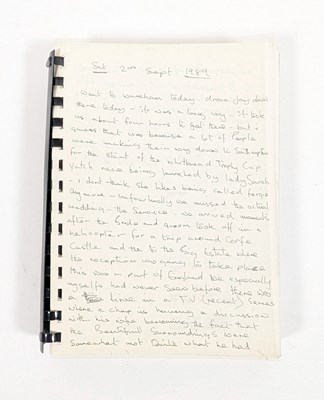 Sat 2nd Sept 1989
Went to wareham today - drove Jay down
there today - it was a long way - it took
us about four hours to get there but I
guess that was because a lot of People
were making their way down to Southampton
for the start of the whitbread Trophy Cup
Yatch race being launched by lady Sarah
I dont think she likes being called fergie
Any more - unfortunatly we missed the actual
wedding - the Service - we arrived moments
after the Bride and groom took off in a
helicopter for a trip around Corfe
Castle and the to the Estate where
the reception was going to take place
This was a part of England Ive especially
myself had never Seen before there was
a line in a T.V (recent) Series
where a chap is having a discussion
with his wife bemoaning the fact that
the Beautiful Surroundings were
Somewhat not Quite what he had